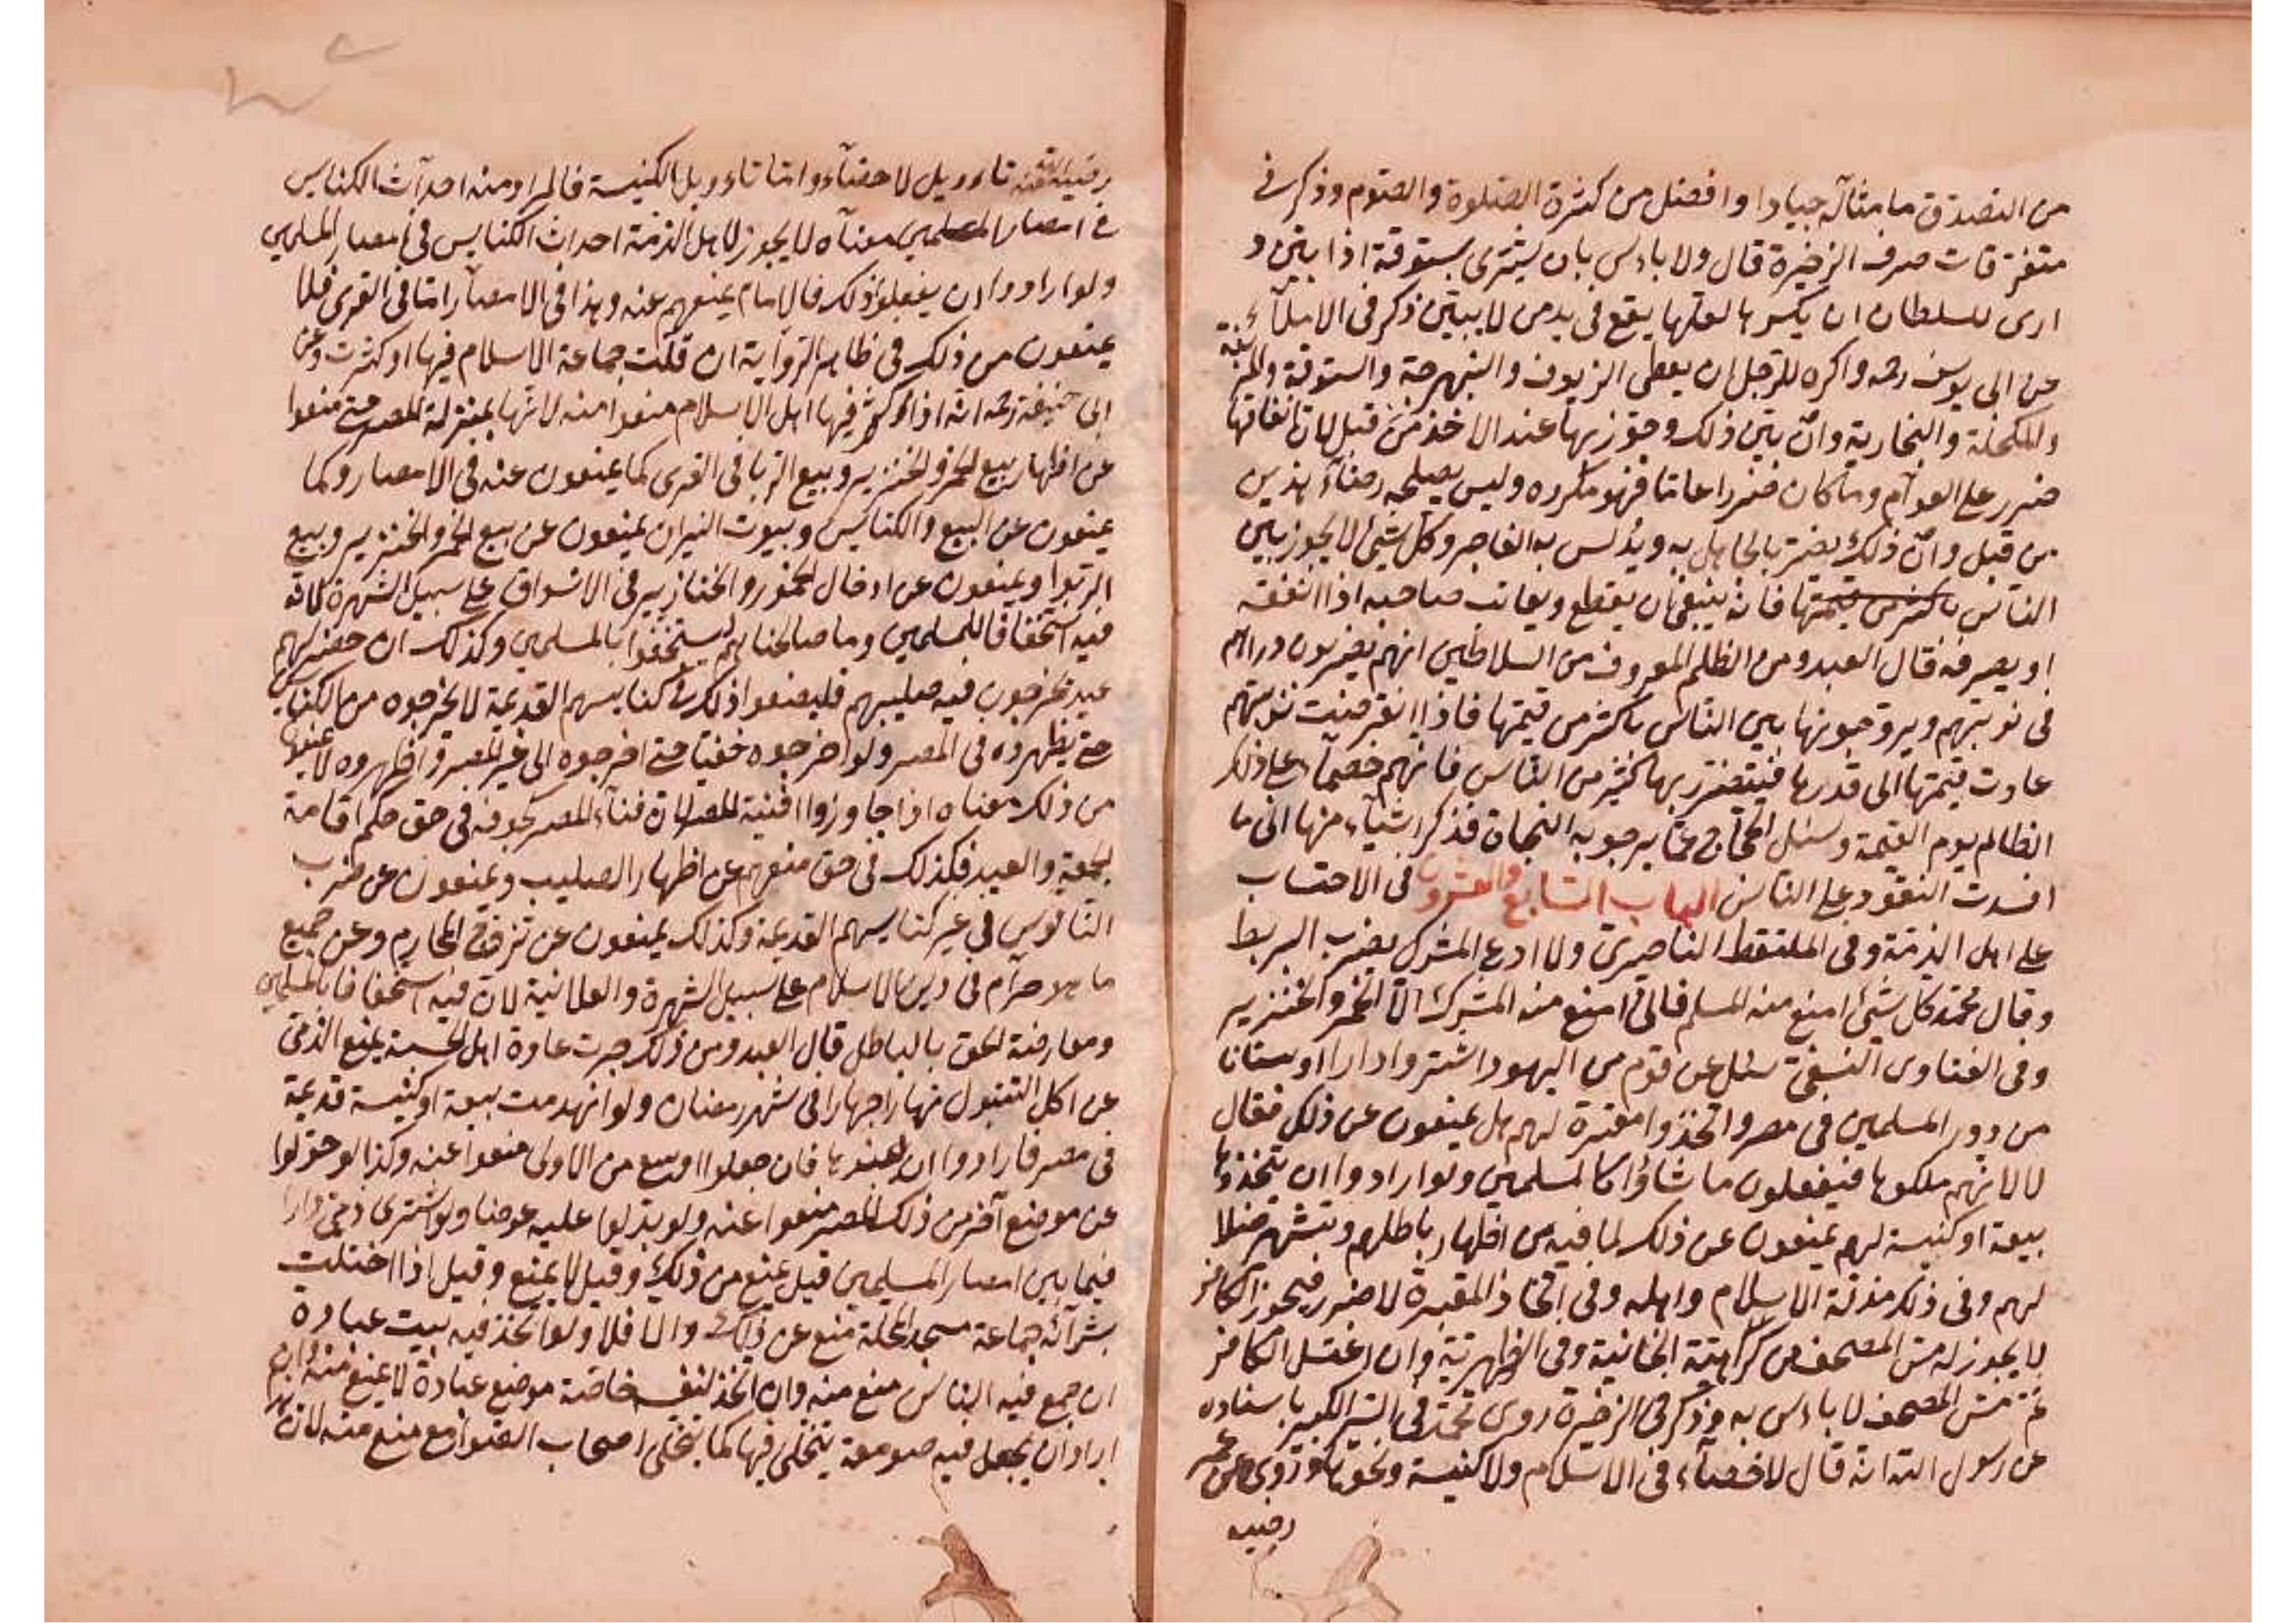 من التصدق ما بمثاله جيادا وافضل من كثرة الصلوة والصوم وذكر في
متفرقات صرف الذخيرة قال ولا بأس بان يشترى بستوقة اذا بين و
ارى للسلطان ان يكسرها لعلها يقع فى يد من لا يبين ذكر فى الاملآء
عن ابى يوسف رحمه واكره للرجل ان يعطى الزيوف والنبهرجة والستوقة والمزيفة
والمكحلة والبخارية وان بين ذلك وتجوز بها عند الاخذ من قبل لان انفاقها
ضرر على العوام وما كان ضررا عاما فهو مكروه وليس يصلحه رضآء هذين
من قبل وان ذلك يضر بالجاهل به ويدلس به الفاجر وكل شئ لا يجوز بين
الناس فانه ينبغى ان يقطع ويعاتب صاحبه اذا انفقه
او يصرفه قال العبد ومن الظلم المعروف من السلاطين انهم يضربون دراهم
فى نوبتهم ويروجونها بين الناس باكثر من قيمتها فاذا انقرضت نوبتهم
عادت قيمتها الى قدرها فيتضرر بها كثير من الناس فانهم خصمآء على ذلك
الظالم يوم القيمة وسئل الحجاج عما يرجو به النجاة فذكر اشيآء منها انى ما
افسدت النقود على الناس الباب السابع والعشرون فى الاحتساب
على اهل الذمة وفى الملتقط الناصرى ولا ادع المشرك يضرب البربط
وقال محمد كل شئ امنع منه المسلم فانى امنع منه المشرك الا الخمر والخنزير
وفى الفتاوى النسفى سئل عن قوم من اليهود اشتروا دارا او بستانا
من دور المسلمين فى مصر واتخذوا مقبرة لهم هل يمنعون عن ذلك فقال
لا لانهم ملكوها فيفعلون ما شاؤا كالمسلمين ولو ارادوا ان يتخذوها
بيعة او كنيسة لهم يمنعون عن ذلك لما فيه من اظهار باطلهم وتشهر ضلا
لهم وفى ذلك مذلة الاسلام واهله وفى اتخاذ المقبرة لا ضرر فيجوز الكافر
لا يجوز له مس المصحف من كراهية الخانية وفى الظهيرية وان اغتسل الكافر
ثم مس المصحف لا بأس به وذكر فى الذخيرة روى محمد فى السير الكبير باسناده
عن رسول الله انه قال لا خصآء فى الاسلام ولا كنيسة ونحو هذا روى عن عمر
رضى
رضى الله عنه تاءويل لا خصآء واما تاءويل الكنيسة فالمراد منه احداث الكنايس
فى امصار المسلمين معناه لا يجوز لاهل الذمة احداث الكنايس فى امصار المسلمين
ولو ارادوا ان يفعلوا ذلك فالامام يمنعهم عنه وهذا فى الامصار اما فى القرى فلا
يمنعون من ذلك فى ظاهر الرواية ان قلت جماعة الاسلام فيها او كثرت وعن
ابى حنيفة رحمه انه اذا كثر فيها اهل الاسلام منعوا منه لانها بمنزلة المصر حتى منعوا
عن اظهار بيع الخمر والخنزير وبيع الربا فى القرى كما يمنعون عنه فى الامصار وكما
يمنعون عن البيع والكنايس وبيوت النيران يمنعون عن بيع الخمر والخنزير وبيع
الربوا ويمنعون عن ادخال الخمور والخنازير فى الاسواق على سبيل الشهرة لانه
فيه استخفافا للمسلمين وما صالحناهم ليستخفوا بالمسلمين وكذلك ان حضر لهم
عيد يخرجون فيه صليبهم فليصنعوا ذلك فى كنايسهم القديمة لا يخرجوه من الكنايس
حتى يظهروه فى المصر ولو اخرجوه خفيا حتى اخرجوه الى غير المصر واظهروه لا يمنعوا
من ذلك معناه اذا جاوزوا افنية المصر لان فناء المصر كجوفه فى حق حكم اقامة
الجمعة والعيد فكذلك فى حق منعهم عن اظهار الصليب ويمنعون عن ضرب
الناقوس فى غير كنايسهم القديمة وكذلك يمنعون عن تزوج المحارم وعن جميع
ما هو حرام فى دين الاسلام على سبيل الشهرة والعلانية لان فيه استخفافا بالمسلمين
ومعارضة الحق بالباطل قال العبد ومن ذلك جرت عادة اهل الحسبة بمنع الذمى
عن اكل التنبول نهارا جهارا فى شهر رمضان ولو انهدمت بيعة او كنيسة قديمة
فى مصر فارادوا ان يبنوها فان جعلوا اوسع من الاولى منعوا عنه وكذا لو حولوا
عن موضع آخر من ذلك المصر منعوا عنه ولو بذلوا عليه عوضا ولو اشترى ذمى دارا
فيما بين امصار المسلمين قيل يمنع من ذلك وقيل لا يمنع وقيل اذا اختلت
بشرآئه جماعة مسجد المحلة منع عن ذلك والا فلا ولو اتخذ فيه بيت عبادة
ان جمع فيه الناس منع منه وان اتخذ لنفسه خاصة موضع عبادة لا يمنع منه وان
اراد ان يجعل فيه صومعة يتخلى فيها كما يتخلى اصحاب الصوامع منع منه لان